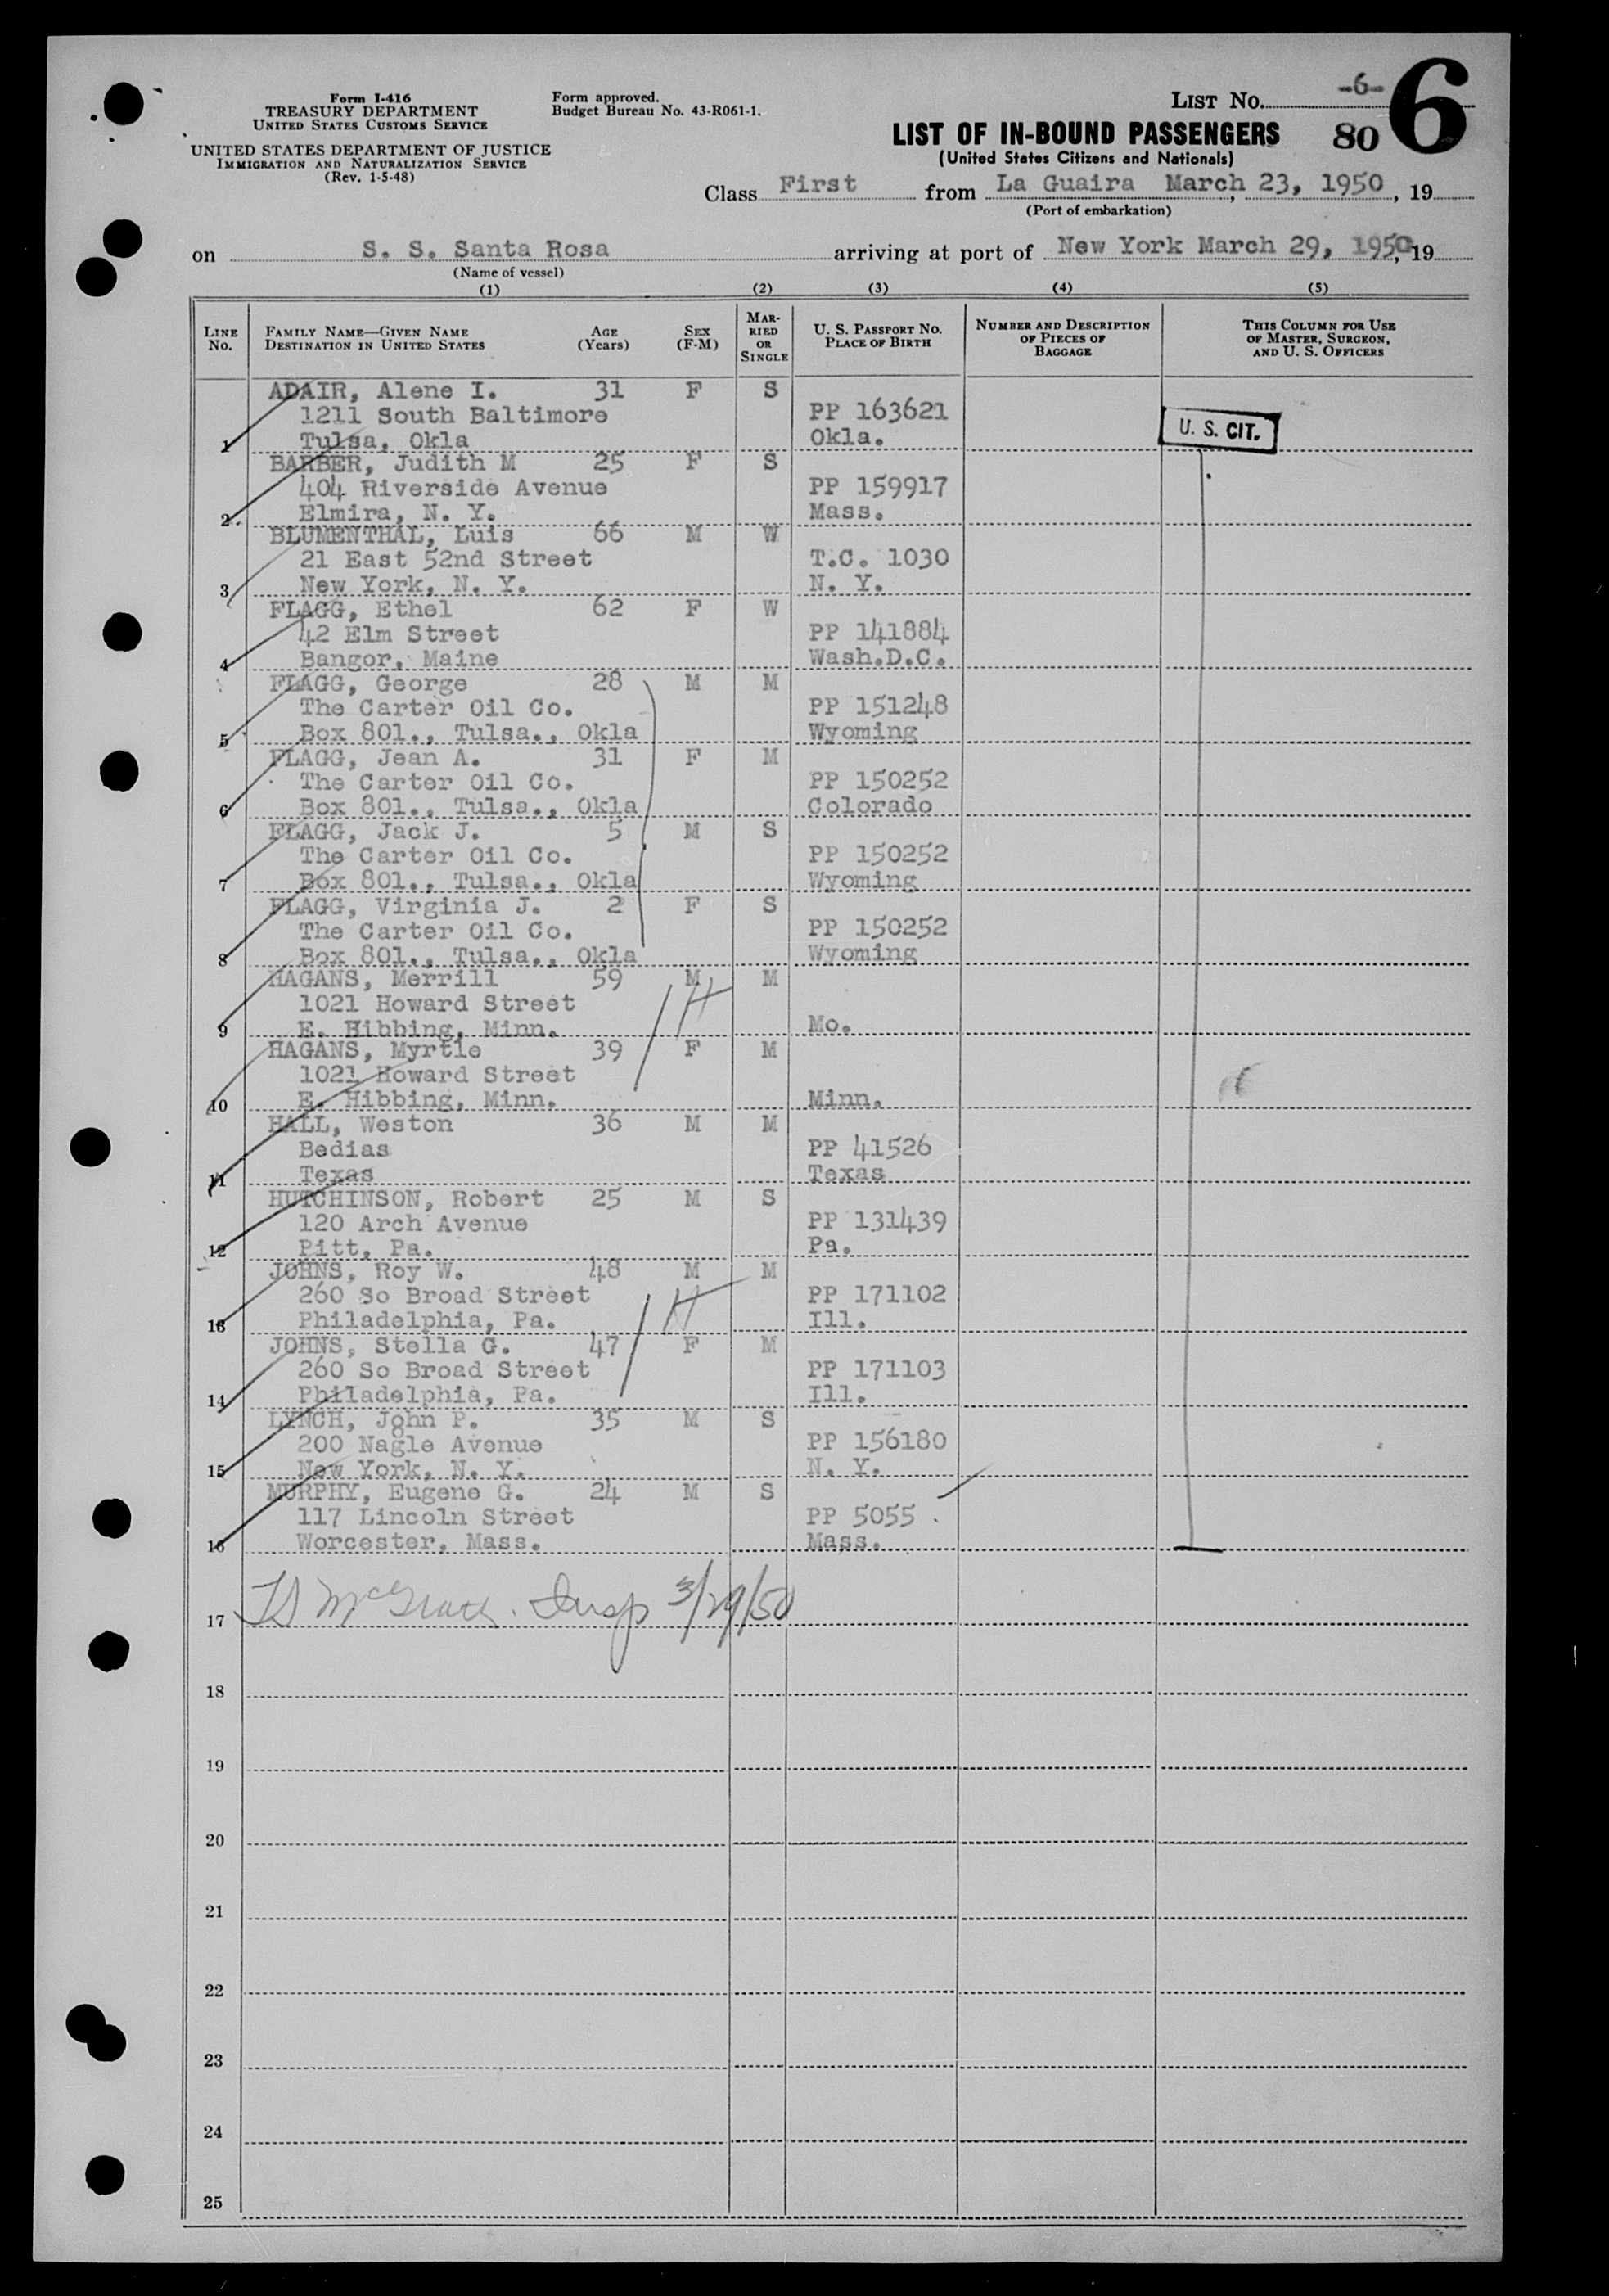 Form I-416
TREASURY DEPARTMENT
UNITED STATES CUSTOMS SERVICE
UNITED STATES DEPARTMENT OF JUSTICE
IMMIGRATION AND NATURALIZATION SERVICE
(Rev. 1-5-48)
Form approved.
Budget Bureau No. 43-R061-1.
LIST NO. -6- 6
LIST OF IN-BOUND PASSENGERS 80
(United States Citizens and Nationals)
Class First from La Guaira March 23, 1950, 19
(Port of embarkation)
on S. S. Santa Rosa arriving at port of New York March 29, 1950, 19
(Name of vessel)
(1) (2) (3) (4) (5)
LINE NO. FAMILY NAME—GIVEN NAME DESTINATION IN UNITED STATES AGE (Years) SEX (F-M) MARRIED OR SINGLE U. S. PASSPORT NO. PLACE OF BIRTH NUMBER AND DESCRIPTION OF PIECES OF BAGGAGE THIS COLUMN FOR USE OF MASTER, SURGEON, AND U. S. OFFICERS
ADAIR, Alene I. 31 F S
1211 South Baltimore PP 163621
1 Tulsa, Okla Okla. U. S. CIT.
BARBER, Judith M 25 F S
404 Riverside Avenue PP 159917
2 Elmira, N. Y. Mass.
BLUMENTHAL, Luis 66 M W
21 East 52nd Street T.C. 1030
3 New York, N. Y. N. Y.
FLAGG, Ethel 62 F W
42 Elm Street PP 141884
4 Bangor, Maine Wash.D.C.
FLAGG, George 28 M M
The Carter Oil Co. PP 151248
5 Box 801., Tulsa., Okla Wyoming
FLAGG, Jean A. 31 F M
The Carter Oil Co. PP 150252
6 Box 801., Tulsa., Okla Colorado
FLAGG, Jack J. 5 M S
The Carter Oil Co. PP 150252
7 Box 801., Tulsa., Okla Wyoming
FLAGG, Virginia J. 2 F S
The Carter Oil Co. PP 150252
8 Box 801., Tulsa., Okla Wyoming
HAGANS, Merrill 59 M M
1021 Howard Street H
9 E. Hibbing, Minn. Mo.
HAGANS, Myrtle 39 F M
1021 Howard Street
10 E. Hibbing, Minn. Minn.
HALL, Weston 36 M M
Bedias PP 41526
11 Texas Texas
HUTCHINSON, Robert 25 M S
120 Arch Avenue PP 131439
12 Pitt, Pa. Pa.
JOHNS, Roy W. 48 M M
260 So Broad Street H PP 171102
13 Philadelphia, Pa. Ill.
JOHNS, Stella G. 47 F M
260 So Broad Street PP 171103
14 Philadelphia, Pa. Ill.
LYNCH, John P. 35 M S
200 Nagle Avenue PP 156180
15 New York, N. Y. N. Y.
MURPHY, Eugene G. 24 M S
117 Lincoln Street PP 5055
16 Worcester, Mass. Mass.
17 McGrath. Insp 3/29/50
18
19
20
21
22
23
24
25